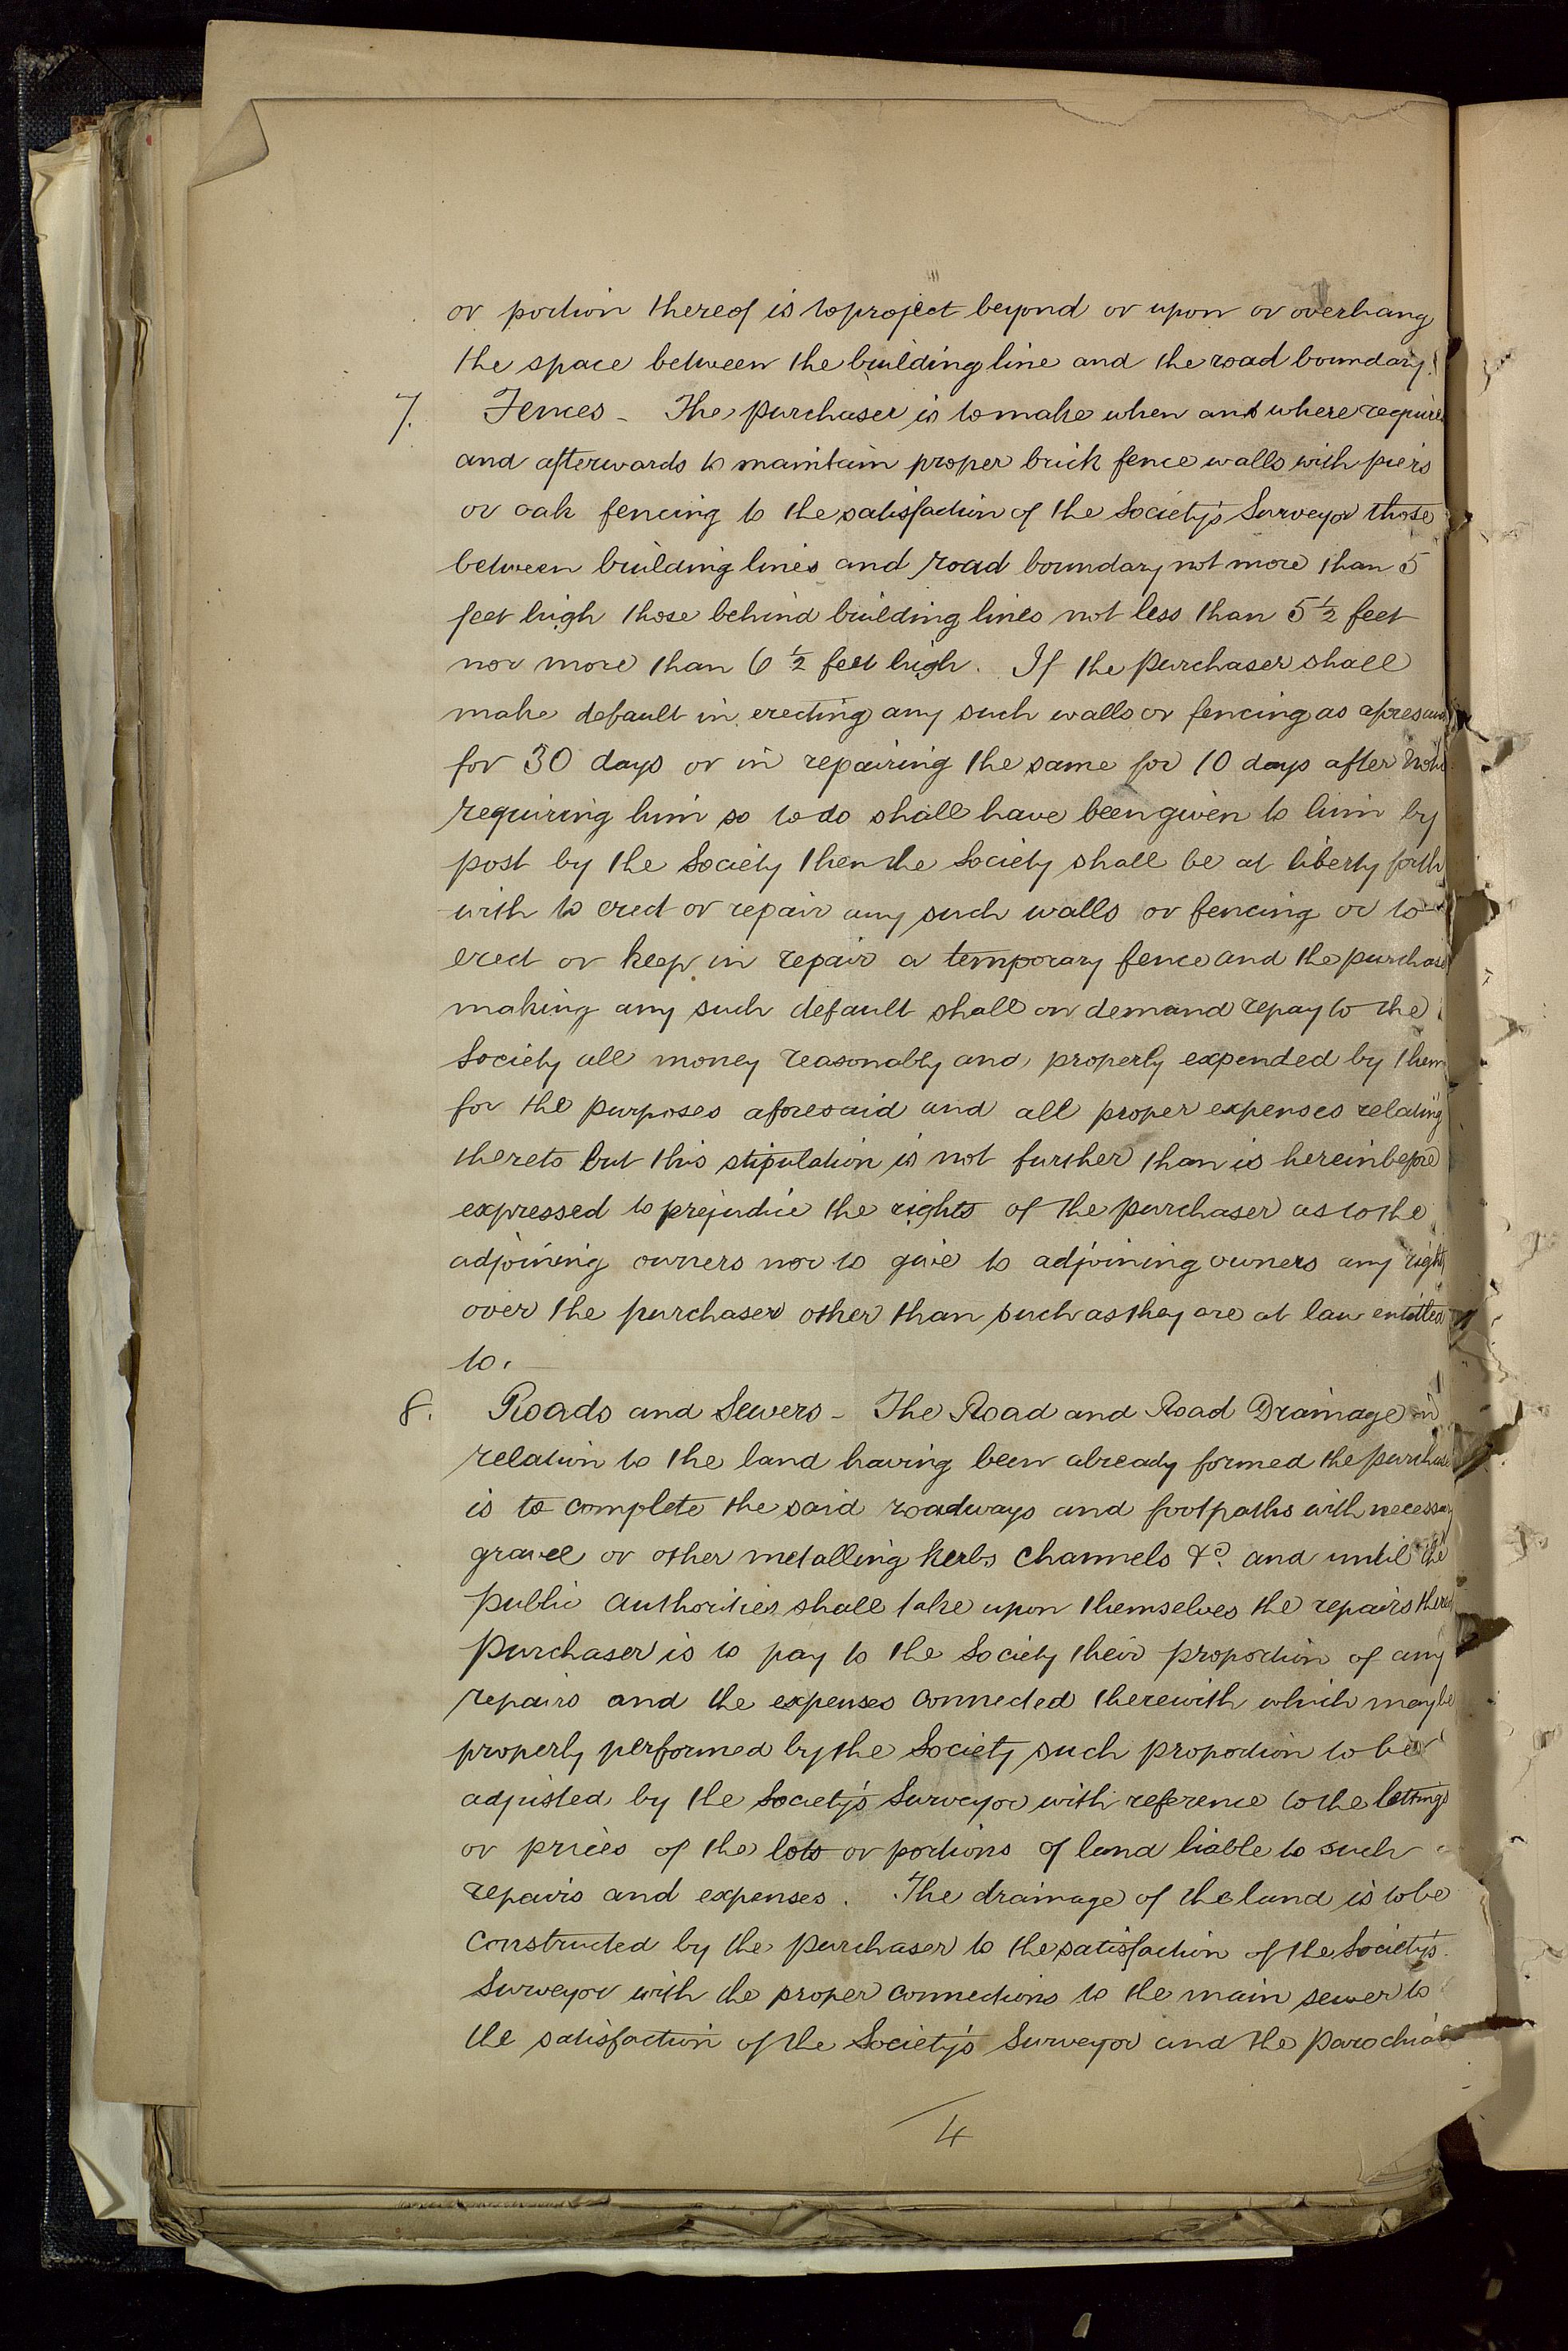 or portion thereof is to project beyond or upon or overhang
the space between the building line and the road boundary.
7. Fences - The purchaser is to make when and where require
and afterwards to maintain proper brick fence walls with piers
or oak fencing to the satisfaction of the Society's Surveyor those
between building lines and road boundary not more than 5
feet high those behind building lines not less than 5 1/2 feet
nor more than 6 1/2 feet high. If the purchaser shall
make default in erecting any such walls or fencing as aforesaid
for 30 days or in repairing the same for 10 days after
requiring him so to do shall have been given to him by
post by the Society then the Society shall be at liberty forth
with to erect or repair any such walls or fencing or to
erect or keep in repair a temporary fence and the purchase
making any such default shall on demand repay to the
Society all money reasonably and properly expended by them
for the purposes aforesaid and all proper expenses relating
thereto but this stipulation is not further than is hereinbefore
expressed to prejudice the rights of the purchaser as to the
adjoining owners nor to give to adjoining owners any right
over the purchaser other than such as they are at law entitled
to.
8. Roads and Sewers - The Road and Road Drainage in
relation to the land having been already formed the purchase
is to complete the said roadways and footpaths with necessary
gravel or other metalling kerbs channels &c. and until the
public authorities shall take upon themselves the repairs
purchaser is to pay to the Society their proportion of any
repairs and the expenses connected therewith which may be
properly performed by the Society such proportion to be
adjusted by the Society's Surveyor with reference to the lettings
or prices of the lots or portions of land liable to such
repairs and expenses. The drainage of the land is to be
constructed by the purchaser to the satisfaction of the Society's
Surveyor with the proper connections to the main sewer to
the satisfaction of the Society's Surveyor and the parochial
4